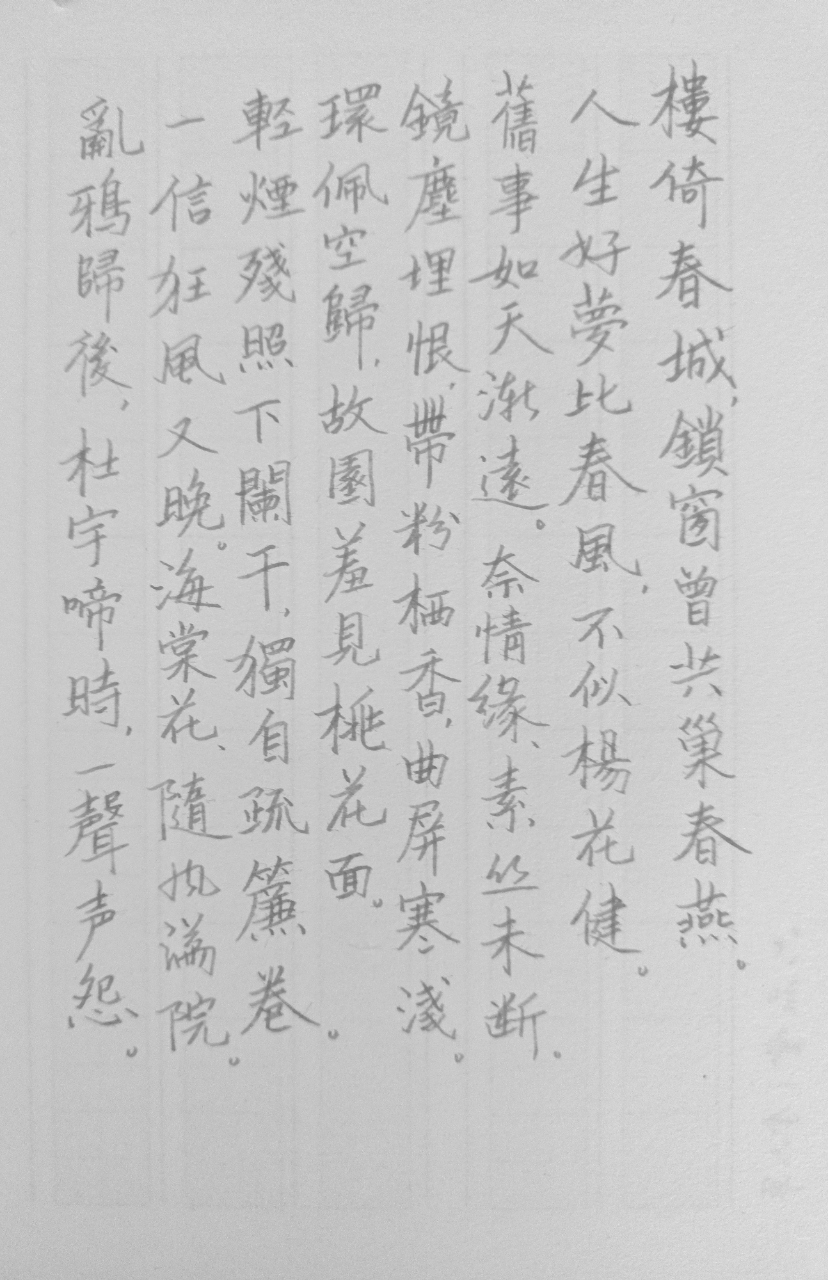 樓倚春城，鎖窗曾共巢春燕。
人生好夢比春風，不似楊花健。
舊事如天漸遠。奈情緣、素丝未断。
鏡塵埋恨，帶粉栖香，曲屏寒淺。
環佩空歸，故園羞見桃花面。
輕煙殘照下闌干，獨自疏簾卷。
一信狂風又晚。海棠花、隨滿院。
亂鴉歸後，杜宇啼時，一聲声怨。